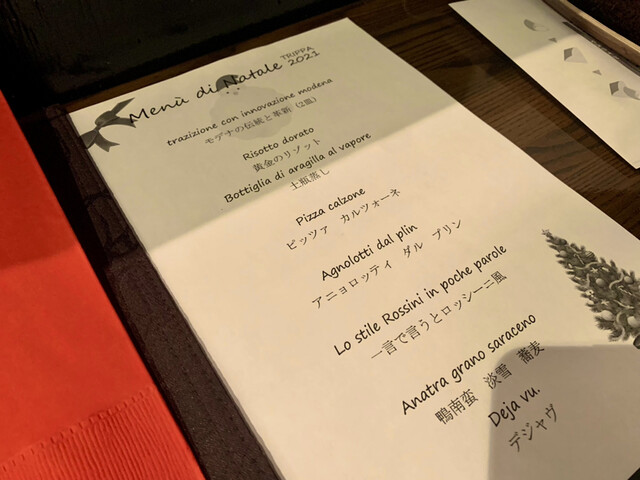 Menù di Natale TRIPPA 2021
trazizione con innovazione modena
モデナの伝統と革新（2皿）
Risotto dorato
黄金のリゾット
Bottiglia di aragilla al vapore
土瓶蒸し
Pizza calzone
ピッツァ カルツォーネ
Agnolotti dal plin
アニョロッティ ダル プリン
Lo stile Rossini in poche parole
一言で言うとロッシーニ風
Anatra grano saraceno
鴨南蛮 淡雪 蕎麦
Deja vu.
デジャヴ